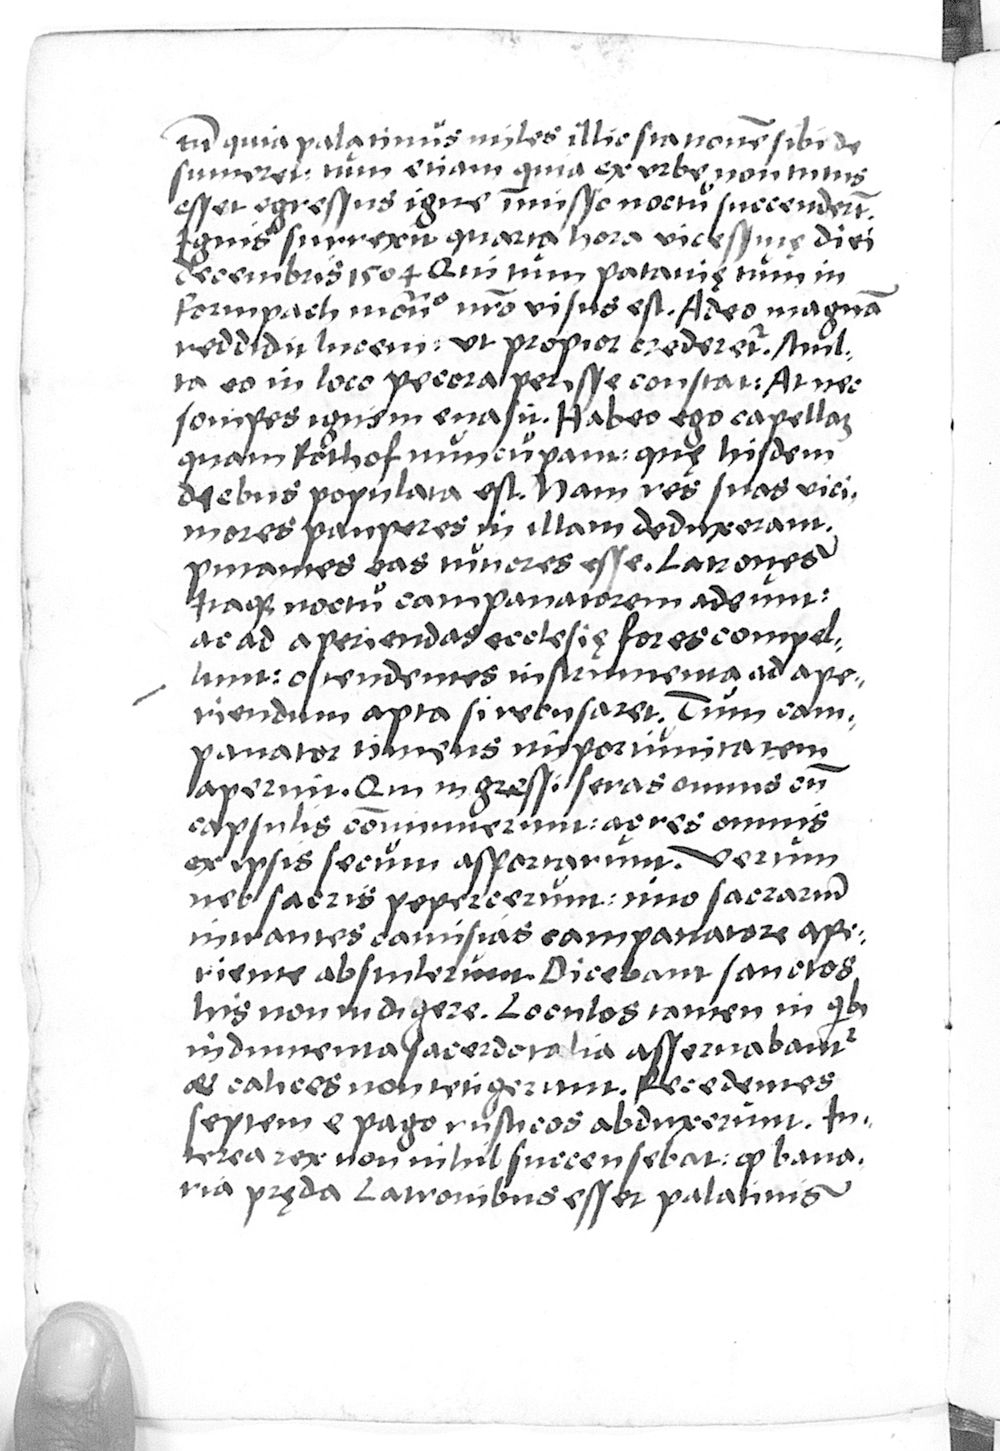 tū quia palatinus miles illic stationē sibi de
sumeret: tum etiam quia ex orbe non tutus
esset egressus igne īmisso noctu succenderēt.
Ignis surrexit quarta hora vicessimę diei
decembris 1504 Qui tum patauię tum in
formpach mōri⁹ nr̄o visus est. Adeo magnā
reddidit lucem: vt propior crederet᷑. Mul-
ta eo in loco pecora perisse constat: At nec
sonipes ignem euasit. Habeo ego capellaꝫ
quam Rothof nuncupant: quę hisdem
diebus populata est. Nam res suas vici-
niores pauperes in illam deduxerant.
putantes eas tutiores esse. Latrones
Itaqꝫ noctu campanatorem adeunt:
ac ad aperiendas ecclesię fores compel-
lunt: ostendentes instrumenta ad ape-
riendum apta si recusaret. Tum cam-
panator timens importunitatem
aperuit. Qui ingressi seras omnis cū
capsulis cōminuerunt: ac res omnis
ex ipsis secum asportarunt. Verum
nec sacris pepercerunt: imo sacrariū
intrantes camisias campanatore ape-
riente abstulerunt. Dicebant sanctos
his non indigere. Loculos tamen in qͥbꝰ
indumenta sacerdotalia asseruabant᷑
ac calices non tetigerunt. Recedentes
septem e pago rusticos abduxerunt. In-
terea rex non nihil succensebat: ꝙ baua-
ria pręda Latronibus esset palatinis